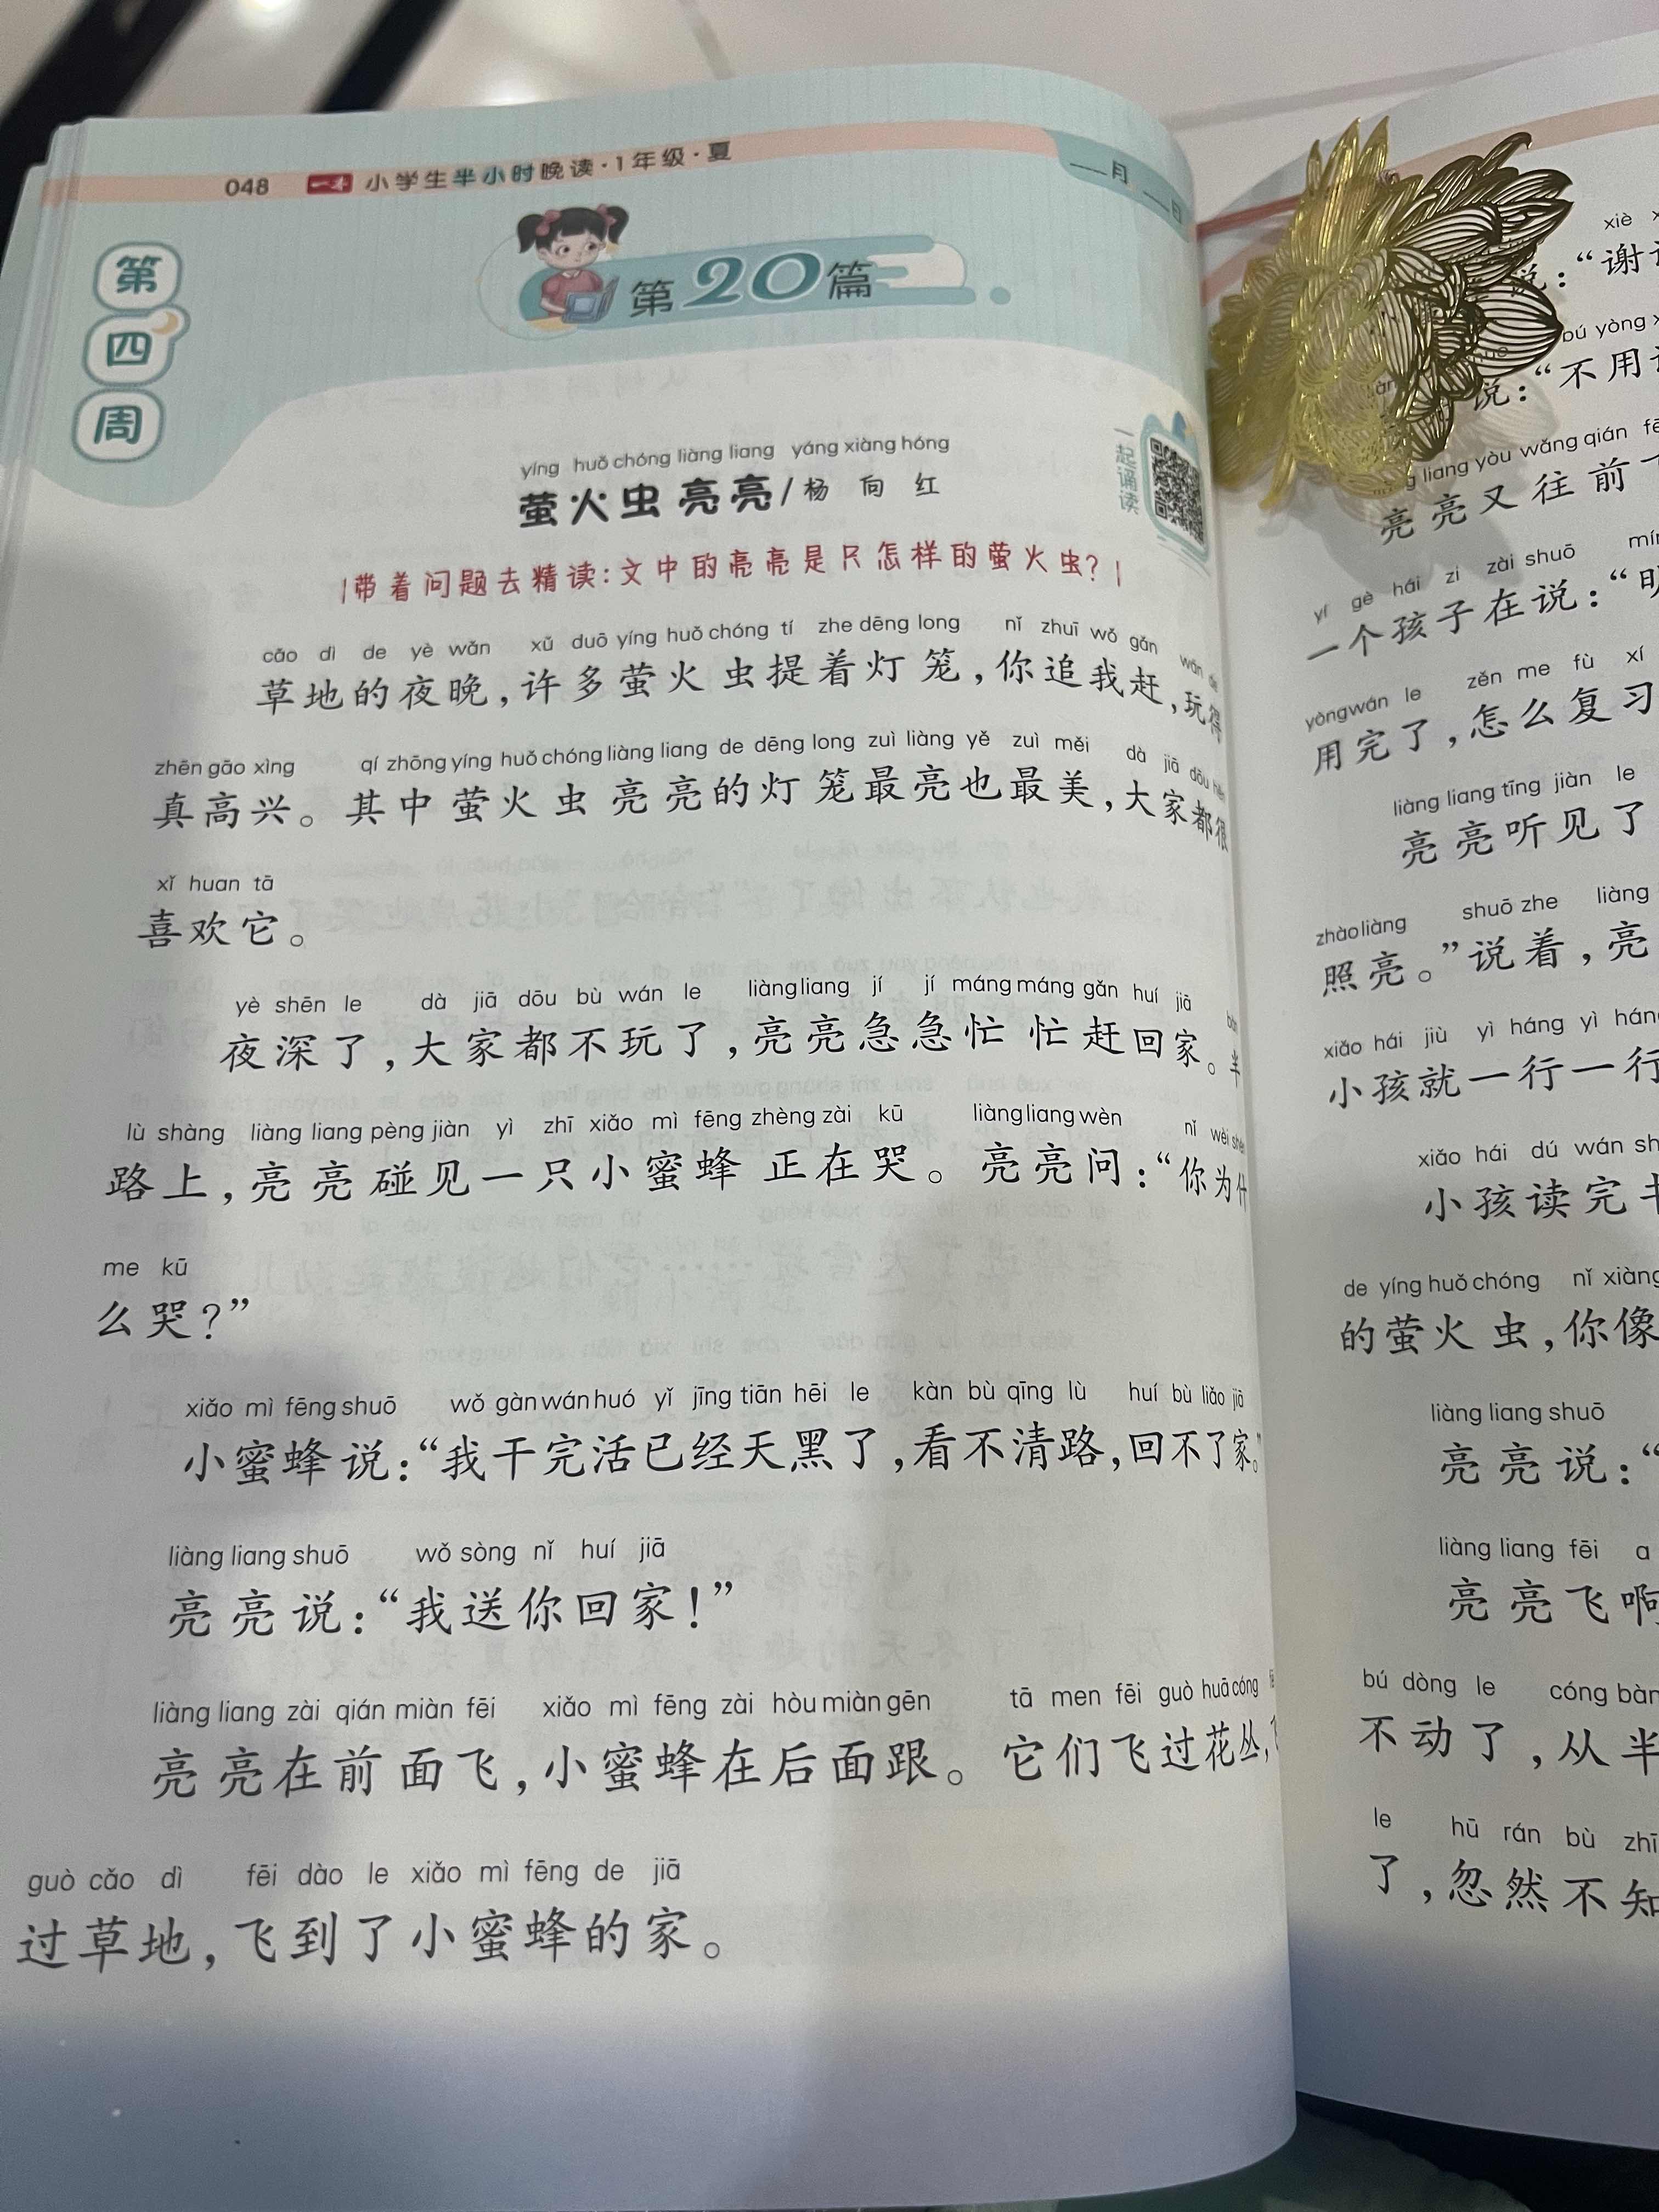 048 一本 小学生半小时晚读·1年级·夏
月 日
第四周
第20篇
yíng huǒ chóng liàng liang yáng xiàng hóng
萤火虫亮亮/杨向红
一起诵读
带着问题去精读:文中的亮亮是只怎样的萤火虫?
cǎo dì de yè wǎn xǔ duō yíng huǒ chóng tí zhe dēng long nǐ zhuī wǒ gǎn wán de
草地的夜晚,许多萤火虫提着灯笼,你追我赶,玩得
zhēn gāo xìng qí zhōng yíng huǒ chóng liàng liang de dēng long zuì liàng yě zuì měi dà jiā dōu hěn
真高兴。其中萤火虫亮亮的灯笼最亮也最美,大家都很
xǐ huan tā
喜欢它。
yè shēn le dà jiā dōu bù wán le liàng liang jí jí máng máng gǎn huí jiā bàn
夜深了,大家都不玩了,亮亮急急忙忙赶回家。半
lù shàng liàng liang pèng jiàn yì zhī xiǎo mì fēng zhèng zài kū liàng liang wèn nǐ wèi shén
路上,亮亮碰见一只小蜜蜂正在哭。亮亮问:“你为什
me kū
么哭?”
xiǎo mì fēng shuō wǒ gàn wán huó yǐ jīng tiān hēi le kàn bù qīng lù huí bù liǎo jiā
小蜜蜂说:“我干完活已经天黑了,看不清路,回不了家。”
liàng liang shuō wǒ sòng nǐ huí jiā
亮亮说:“我送你回家!”
liàng liang zài qián miàn fēi xiǎo mì fēng zài hòu miàn gēn tā men fēi guò huā cóng
亮亮在前面飞,小蜜蜂在后面跟。它们飞过花丛,飞
guò cǎo dì fēi dào le xiǎo mì fēng de jiā
过草地,飞到了小蜜蜂的家。
xiè
说:“谢
bú yòng
说:“不用
liang yòu wǎng qián
亮亮又往前
yí gè hái zi zài shuō
一个孩子在说:“
yòng wán le zěn me fù xí
用完了,怎么复习
liàng liang tīng jiàn le
亮亮听见了
zhào liàng shuō zhe liàng
照亮。”说着,亮
xiǎo hái jiù yì háng yì háng
小孩就一行一行
xiǎo hái dú wán
小孩读完
de yíng huǒ chóng nǐ xiàng
的萤火虫,你像
liàng liang shuō
亮亮说:“
liàng liang fēi a
亮亮飞啊
bú dòng le cóng bàn
不动了,从半
le hū rán bù zhī
了,忽然不知